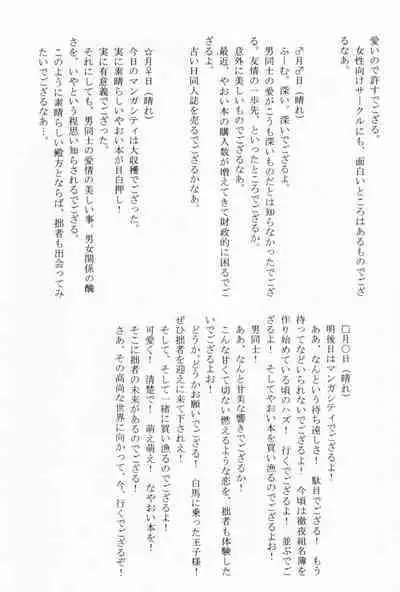 愛いので許すでござる。
女性向けサークルにも、面白いところはあるものでござ
るなあ。
♂月♂日（晴れ）
ふーむ。深い。深いでござるよ。
男同士の愛がこうも深いものだとは知らなかったでござ
る。友情の一歩先、といったところでござるか。
意外に美しいものでござるなあ。
最近、やおい本の購入数が増えてきて財政的に困るでご
ざるよ。
古い日同人誌を売るでござるかなあ。
☆月♀日（晴れ）
今日のマンガシティは大収穫でござった。
実に素晴らしいやおい本が目白押し！
実に有意義でござった。
それにしても、男同士の愛情の美しい事。男女関係の醜
さを、いやという程思い知らされるでござる。
このように素晴らしい殿方とならば、拙者も出会ってみ
たいでござるなあ…。
□月○日（晴れ）
明後日はマンガシティでござるよ！
ああ、なんという待ち遠しさ！　駄目でござる！　もう
待ってなどいられないでござるよ！　今頃は徹夜組名簿を
作り始めている頃のハズ！　行くでござるよ！　並ぶでご
ざるよ！　そしてやおい本を買い漁るでござるよお！
男同士！
ああ、なんと甘美な響きでござるか！
こんな甘くて切ない燃えるような恋を、拙者も体験した
いでござるよお！
どうか、どうかお願いでござる！　白馬に乗った王子様！
ぜひ拙者を迎えに来て下されえ！
そして、そして一緒に買い漁るのでござるよ！
可愛く！　清楚で！　萌え萌え！　なやおい本を！
そこに拙者の未来があるのでござる！
さあ、その高尚な世界に向かって、今、行くでござるぞ！